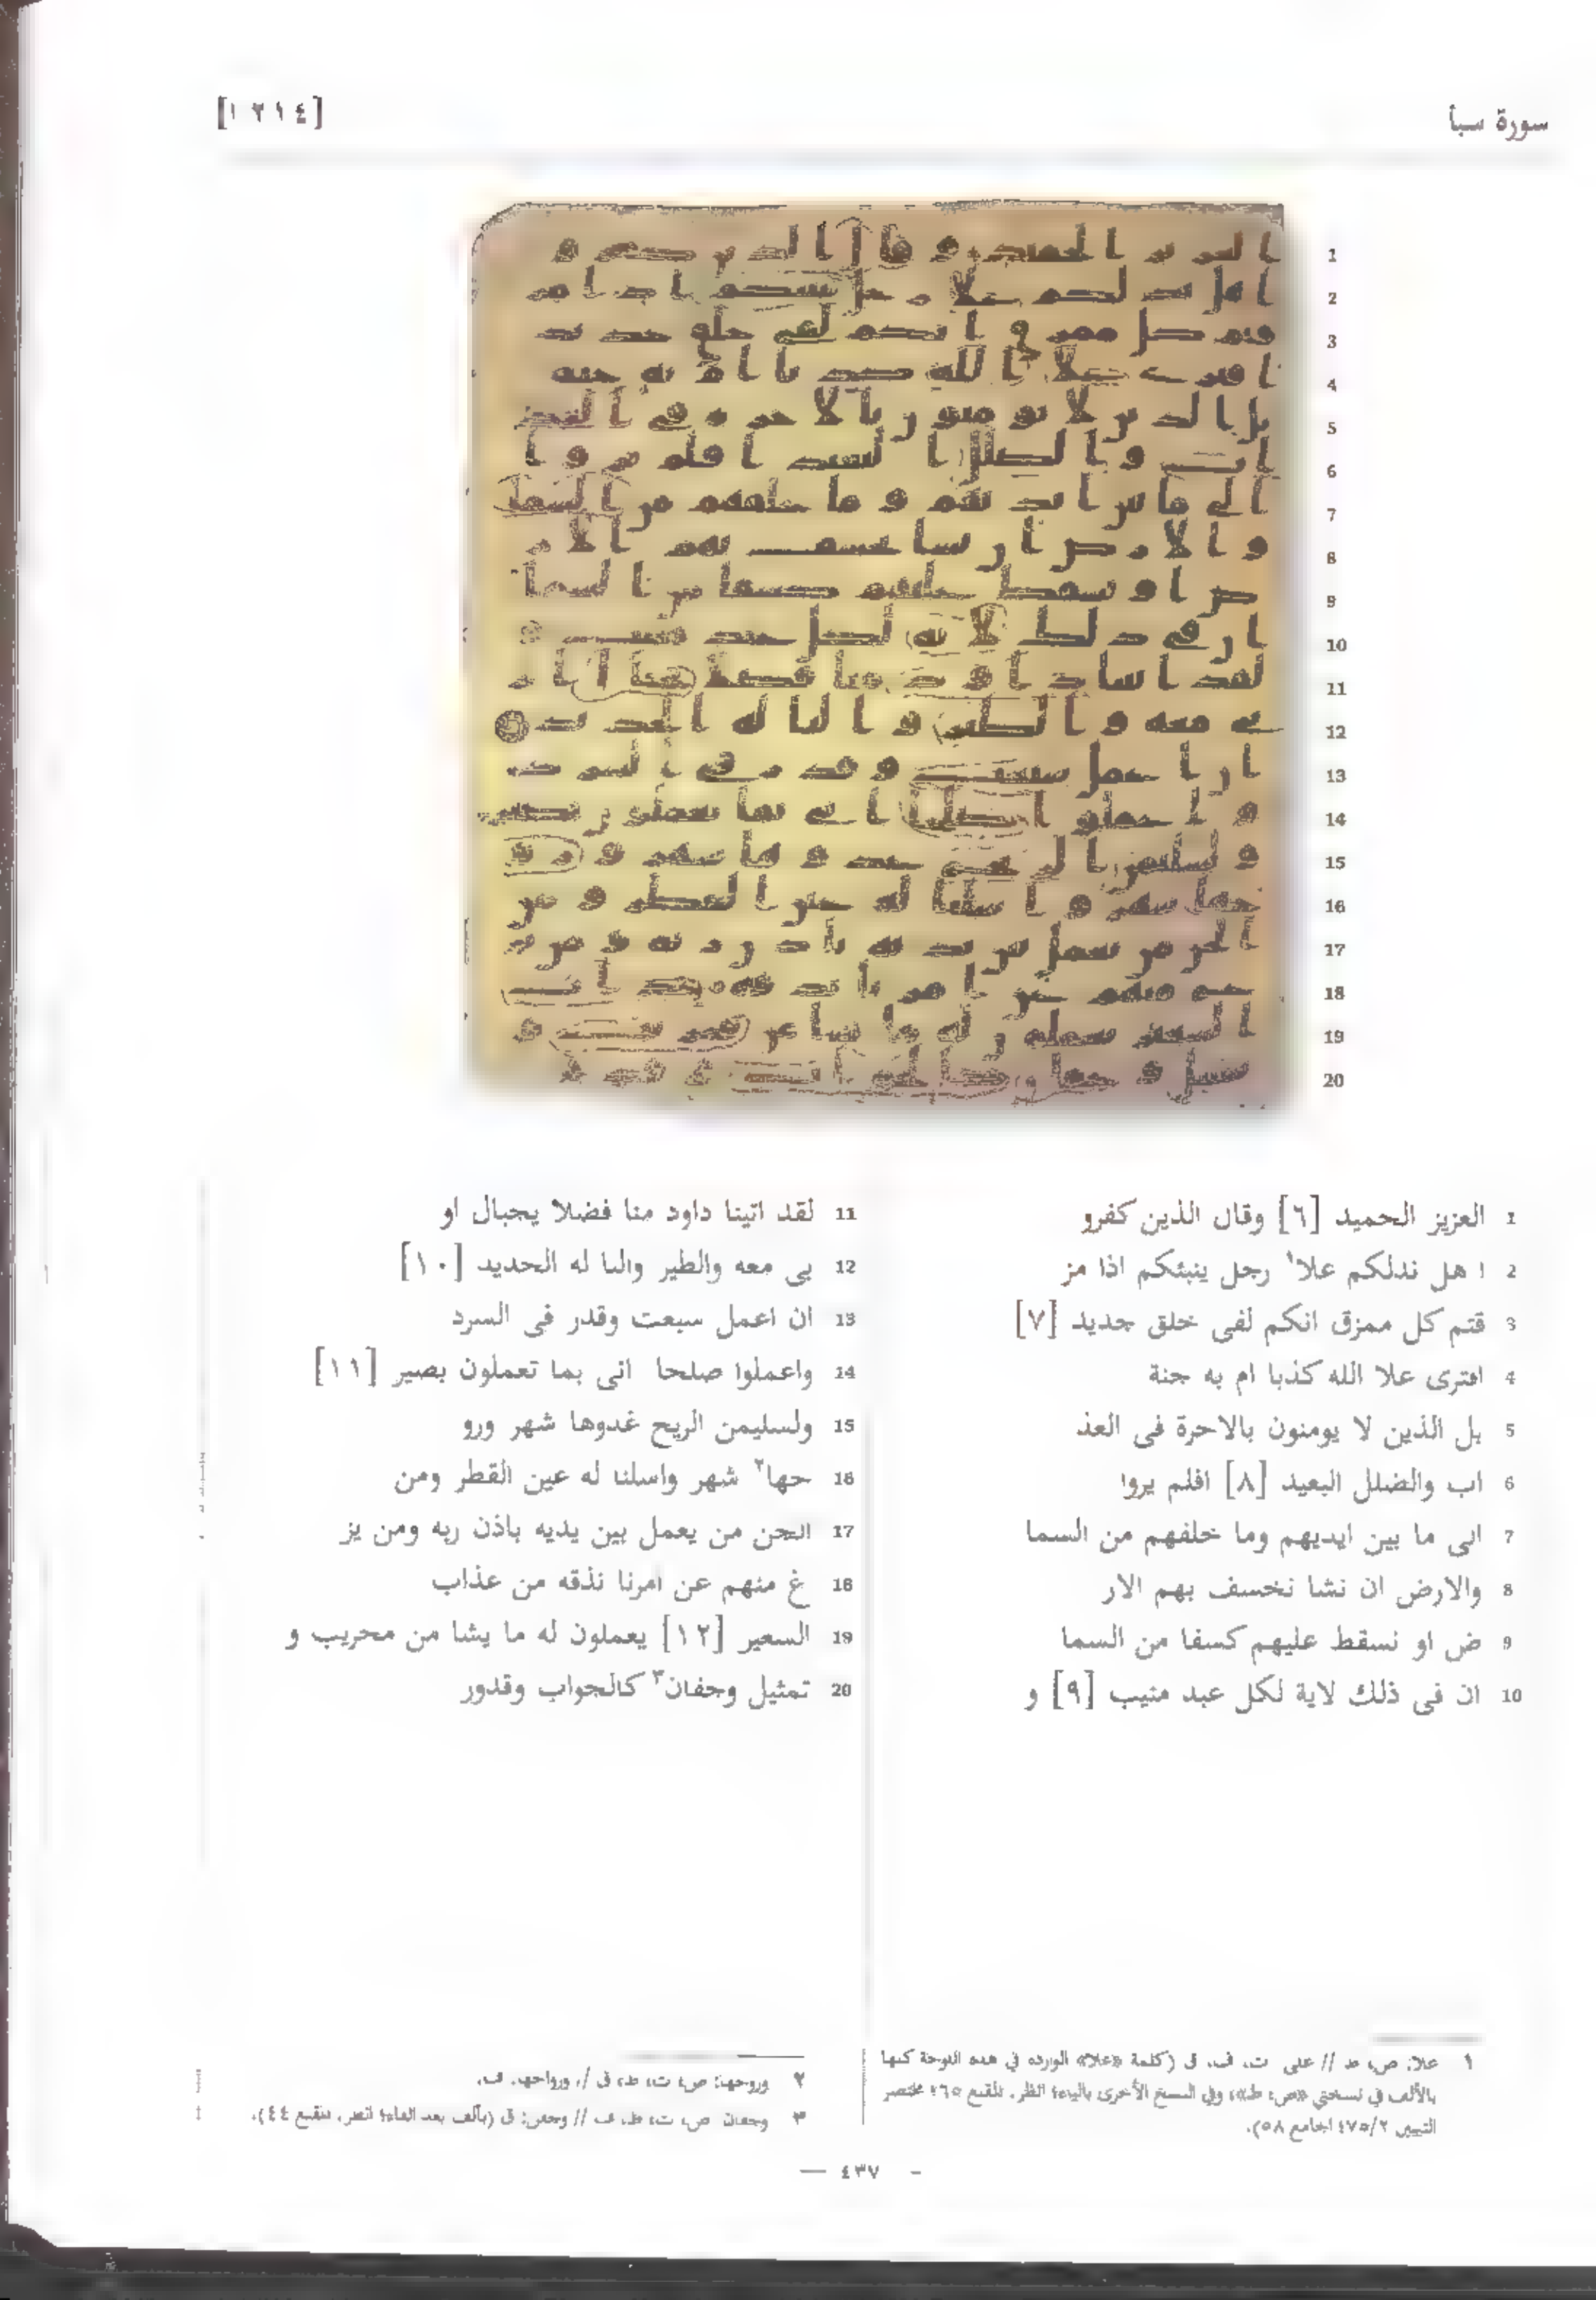 سورة سبأ
[١٢١٤]
1 العزيز الحميد [٦] وقال الذين كفرو
2 ا هل ندلكم علا١ رجل ينبئكم اذا مز
3 قتم كل ممزق انكم لفى خلق جديد [٧]
4 افترى علا الله كذبا ام به جنة
5 بل الذين لا يومنون بالاخرة فى العذ
6 اب والضلل البعيد [٨] افلم يروا
7 الى ما بين ايديهم وما خلفهم من السما
8 والارض ان نشا نخسف بهم الار
9 ض او نسقط عليهم كسفا من السما
10 ان فى ذلك لاية لكل عبد منيب [٩] و
11 لقد اتينا داود منا فضلا يجبال او
12 بى معه والطير والنا له الحديد [١٠]
13 ان اعمل سبغت وقدر فى السرد
14 واعملوا صلحا انى بما تعملون بصير [١١]
15 ولسليمن الريح غدوها شهر ورو
16 حها٢ شهر واسلنا له عين القطر ومن
17 الجن من يعمل بين يديه باذن ربه ومن يز
18 غ منهم عن امرنا نذقه من عذاب
19 السعير [١٢] يعملون له ما يشا من محريب و
20 تمثيل وجفان٣ كالجواب وقدور
١ علا: ص، ط // على ت، ف، ق (كلمة «علا» الواردة في هذه اللوحة كتبها
بالألف في نسختي «ص، ط»، وفي النسخ الأخرى بالياء؛ انظر، المقنع ٦٥؛ مختصر
التبيين ٤٧٥/٢ الجامع ٥٨).
٢ وروحها: ص، ت، ط، ق //، ورواحها، ف.
٣ وجفان ص، ت، ط، ف // وجفن: ق (بألف بعد الفاء؛ انظر، المقنع ٤٤).
— ٤٣٧ -